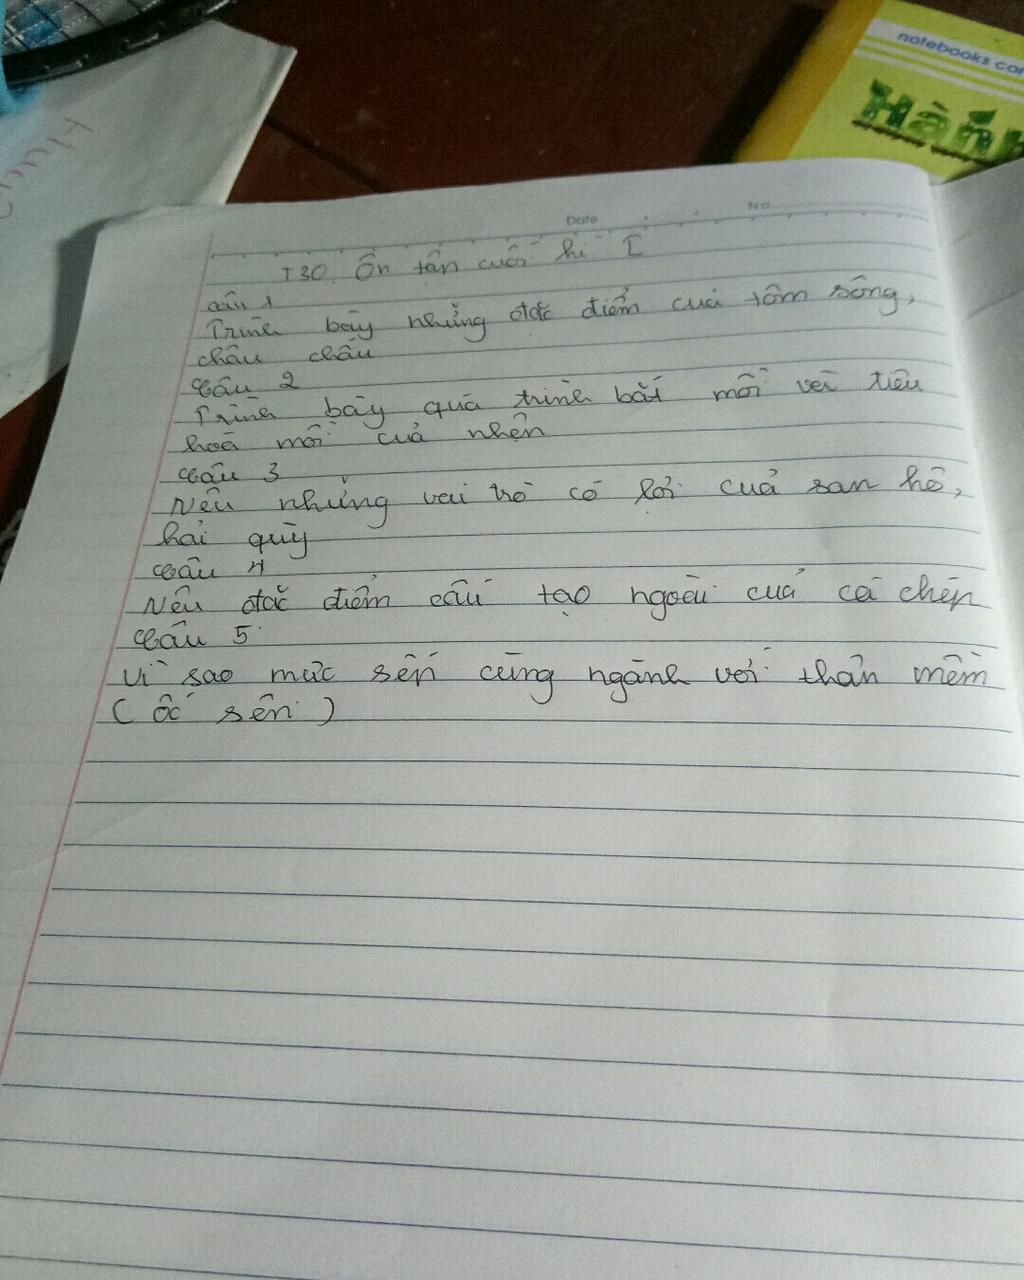 notebooks com
Hành
Date No
T30. Ôn tận cuối kì I
câu 1
Trình bày những đặc điểm của tôm sông,
châu chấu
câu 2
Trình bày quá trình bắt mồi về tiêu
hoá mồi của nhện
câu 3
Nêu những vai trò có lợi của san hô,
hải quỳ
câu 4
Nêu đặc điểm cấu tạo ngoài của cá chép
câu 5
Vì sao mực sến cùng ngành với thân mềm
( ốc sên )